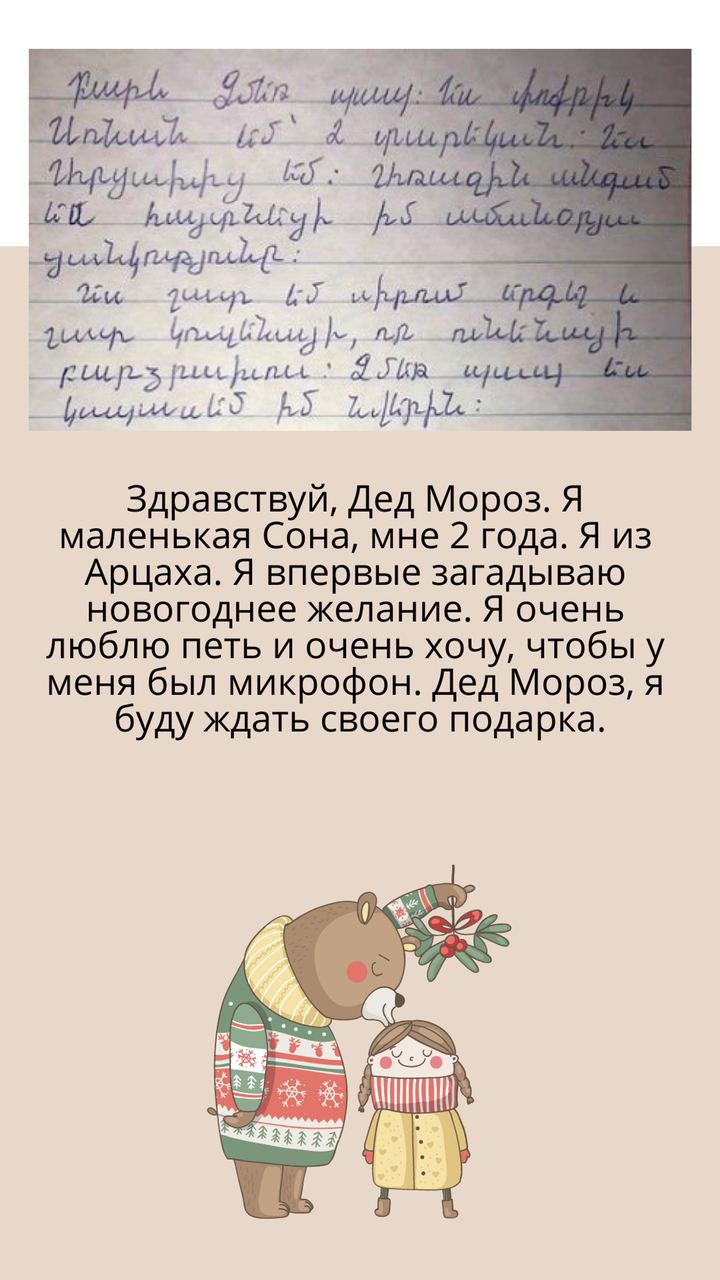 Բարև Ձմեռ պապ: Ես փոքրիկ
Սոնան եմ՝ 2 տարեկան: Ես
եմ: Առաջին անգամ
եմ հայտնելու իմ ամանօրյա
ցանկությունը:
Ես շատ եմ սիրում երգել և
շատ կուզենայի, որ ունենայի
բարձրախոս: Ձմեռ պապ ես
կսպասեմ իմ նվերին:
Здравствуй, Дед Мороз. Я
маленькая Сона, мне 2 года. Я из
Арцаха. Я впервые загадываю
новогоднее желание. Я очень
люблю петь и очень хочу, чтобы у
меня был микрофон. Дед Мороз, я
буду ждать своего подарка.